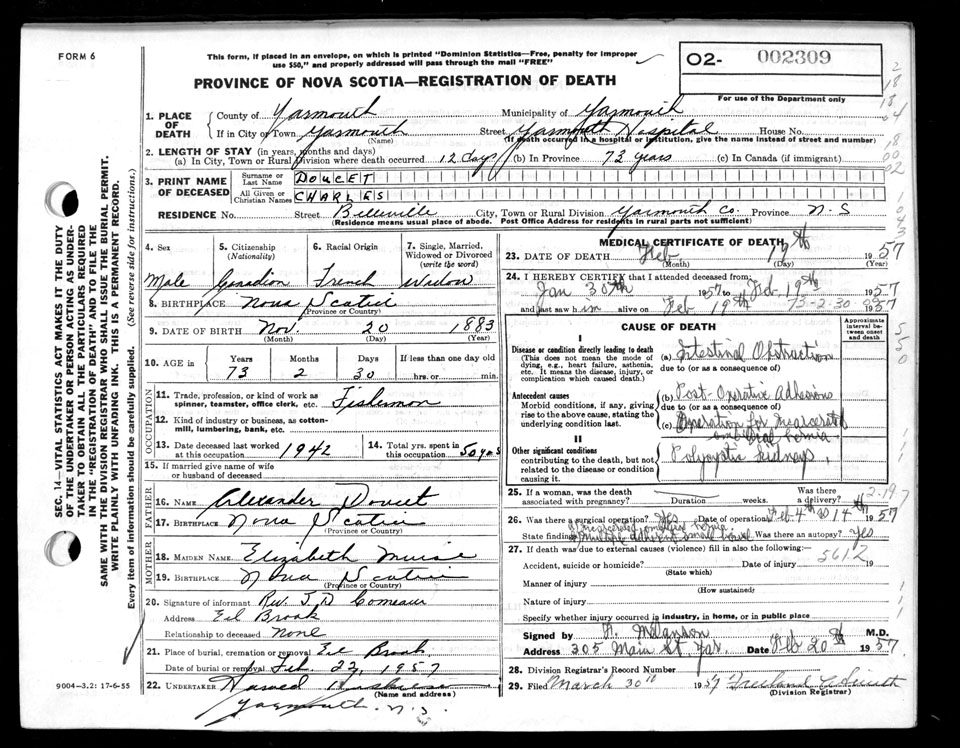 FORM 6
This form, if placed in an envelope, on which is printed "Dominion Statistics—Free, penalty for improper
use $50," and properly addressed will pass through the mail "FREE"
PROVINCE OF NOVA SCOTIA—REGISTRATION OF DEATH
O2- 002309
For use of the Department only
1. PLACE OF DEATH
County of Yarmouth Municipality of Yarmouth
If in City or Town Yarmouth Street Yarmouth Hospital House No.
(Name) (If death occurred in a hospital or institution, give the name instead of street and number)
2. LENGTH OF STAY (in years, months and days)
(a) In City, Town or Rural Division where death occurred 12 days (b) In Province 73 years (c) In Canada (if immigrant)
3. PRINT NAME OF DECEASED
Surname or Last Name DOUCET
All Given or Christian Names CHARLES
RESIDENCE No. Street Belleville City, Town or Rural Division Yarmouth Co. Province N.S
(Residence means usual place of abode. Post Office Address for residents in rural parts not sufficient)
4. Sex 5. Citizenship (Nationality) 6. Racial Origin 7. Single, Married, Widowed or Divorced (write the word)
Male Canadian French Widow
8. BIRTHPLACE Nova Scotia
(Province or Country)
9. DATE OF BIRTH Nov. 20 1883
(Month) (Day) (Year)
10. AGE in Years Months Days If less than one day old
73 2 30 hrs. or min.
OCCUPATION
11. Trade, profession, or kind of work as spinner, teamster, office clerk, etc. Fisherman
12. Kind of industry or business, as cotton-mill, lumbering, bank, etc.
13. Date deceased last worked at this occupation 1942 14. Total yrs. spent in this occupation 50 yrs
15. If married give name of wife or husband of deceased
FATHER
16. NAME Alexander Doucet
17. BIRTHPLACE Nova Scotia
(Province or Country)
MOTHER
18. MAIDEN NAME Elizabeth Muise
19. BIRTHPLACE Nova Scotia
(Province or Country)
20. Signature of informant Rev. J. D Comeau
Address Eel Brook
Relationship to deceased None
21. Place of burial, cremation or removal Eel Brook
Date of burial or removal Feb. 22, 1957
22. UNDERTAKER
(Name and address)
Yarmouth. N.S.
9004-3.2: 17-6-55
MEDICAL CERTIFICATE OF DEATH
23. DATE OF DEATH Feb 19th 1957
(Month) (Day) (Year)
24. I HEREBY CERTIFY that I attended deceased from:
Jan 30th 1957 to Feb. 19th 1957
and last saw him alive on Feb 19th 1957
73-2-30
CAUSE OF DEATH
Approximate interval between onset and death
I
Disease or condition directly leading to death
(This does not mean the mode of dying, e.g., heart failure, asthenia, etc. It means the disease, injury, or complication which caused death.)
(a) Intestinal Obstruction
due to (or as a consequence of)
Antecedent causes
Morbid conditions, if any, giving rise to the above cause, stating the underlying condition last.
(b) Post-Operative Adhesions
due to (or as a consequence of)
(c) Operation for Incarcerated umbilical hernia
II
Other significant conditions
contributing to the death, but not related to the disease or condition causing it.
Polycystic kidneys
25. If a woman, was the death associated with pregnancy? Duration weeks. Was there a delivery?
2.19.7
26. Was there a surgical operation? Yes Date of operation Feb 4th & 14th 1957
State findings Incarcerated umbilical hernia
Multiple adherent small bowel Was there an autopsy? Yes
27. If death was due to external causes (violence) fill in also the following:—
5612
Accident, suicide or homicide? Date of injury 19
(State which)
Manner of injury
(How sustained)
Nature of injury
Specify whether injury occurred in industry, in home, or in public place
Signed by Melanson M.D.
Address 305 Main St. Yar. Date Feb 20th 1957
28. Division Registrar's Record Number
29. Filed March 30th 1957
(Division Registrar)
SEC. 14—VITAL STATISTICS ACT MAKES IT THE DUTY
OF THE UNDERTAKER OR PERSON ACTING AS UNDER-
TAKER TO OBTAIN ALL THE PARTICULARS REQUIRED
IN THE "REGISTRATION OF DEATH" AND TO FILE THE
SAME WITH THE DIVISION REGISTRAR WHO SHALL ISSUE THE BURIAL PERMIT.
WRITE PLAINLY WITH UNFADING INK. THIS IS A PERMANENT RECORD.
Every item of information should be carefully supplied. (See reverse side for instructions.)